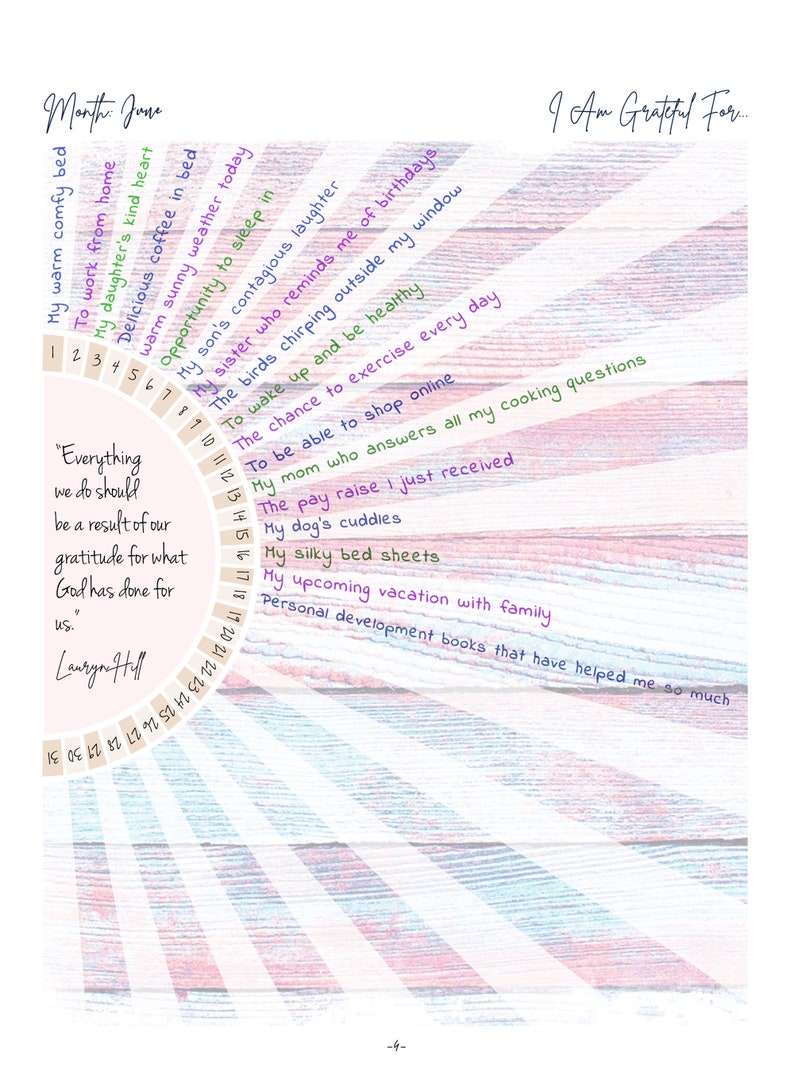 Month: June
I Am Grateful For...
My warm comfy bed
To work from home
My daughter's kind heart
Delicious coffee in bed
Warm sunny weather today
Opportunity to sleep in
My son's contagious laughter
My sister who reminds me of birthdays
The birds chirping outside my window
To wake up and be healthy
The chance to exercise every day
To be able to shop online
My mom who answers all my cooking questions
The pay raise I just received
My dog's cuddles
My silky bed sheets
My upcoming vacation with family
Personal development books that have helped me so much
1
2
3
4
5
6
7
8
9
10
11
12
13
14
15
16
17
18
19
20
21
22
23
24
25
26
27
28
29
30
31
"Everything
we do should
be a result of our
gratitude for what
God has done for
us."
Lauryn Hill
-4-